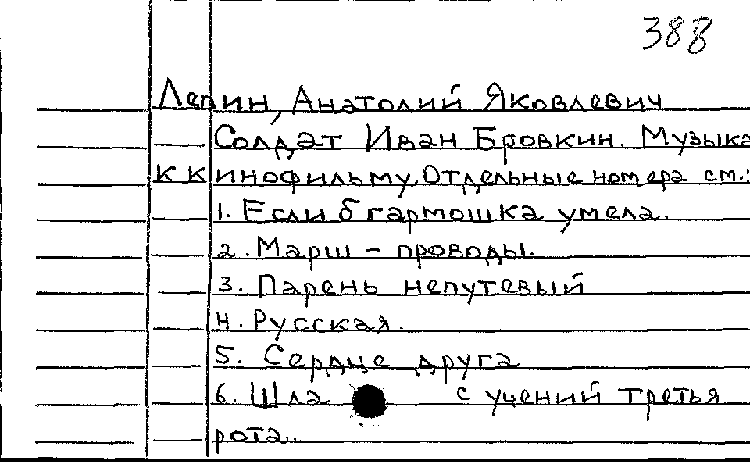 388
Лепин, Анатолий Яковлевич
Солдат Иван Бровкин. Музыка
к кинофильму. Отдельные номера см.:
1. Если б гармошка умела.
2. Марш - проводы.
3. Парень непутевый
4. Русская.
5. Сердце друга
6. Шла с учений третья
рота.